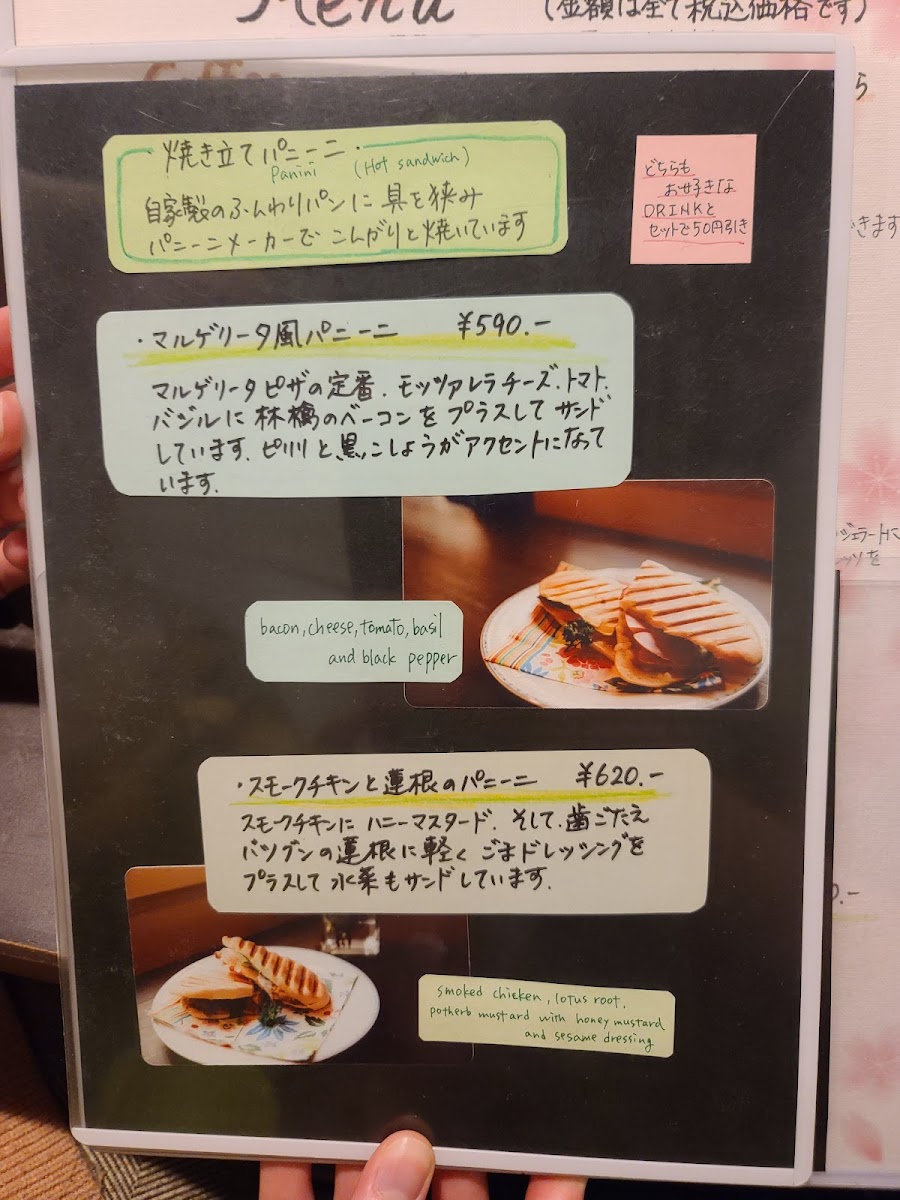 Menu
(金額は全て税込価格です)
・焼き立てパニーニ・
Panini (Hot sandwich)
自家製のふんわりパンに具を挟み
パニーニメーカーでこんがりと焼いています
どちらも
お好きな
DRINKと
セットで50円引き
・マルゲリータ風パニーニ ¥590.-
マルゲリータピザの定番、モッツァレラチーズ、トマト、
バジルに林檎のベーコンをプラスしてサンド
しています。ピリリと黒こしょうがアクセントになって
います。
bacon, cheese, tomato, basil
and black pepper
・スモークチキンと蓮根のパニーニ ¥620.-
スモークチキンにハニーマスタード、そして、歯ごたえ
バツグンの蓮根に軽くごまドレッシングを
プラスして水菜もサンドしています。
smoked chicken, lotus root,
potherb mustard with honey mustard
and sesame dressing
きます
ジェラートに